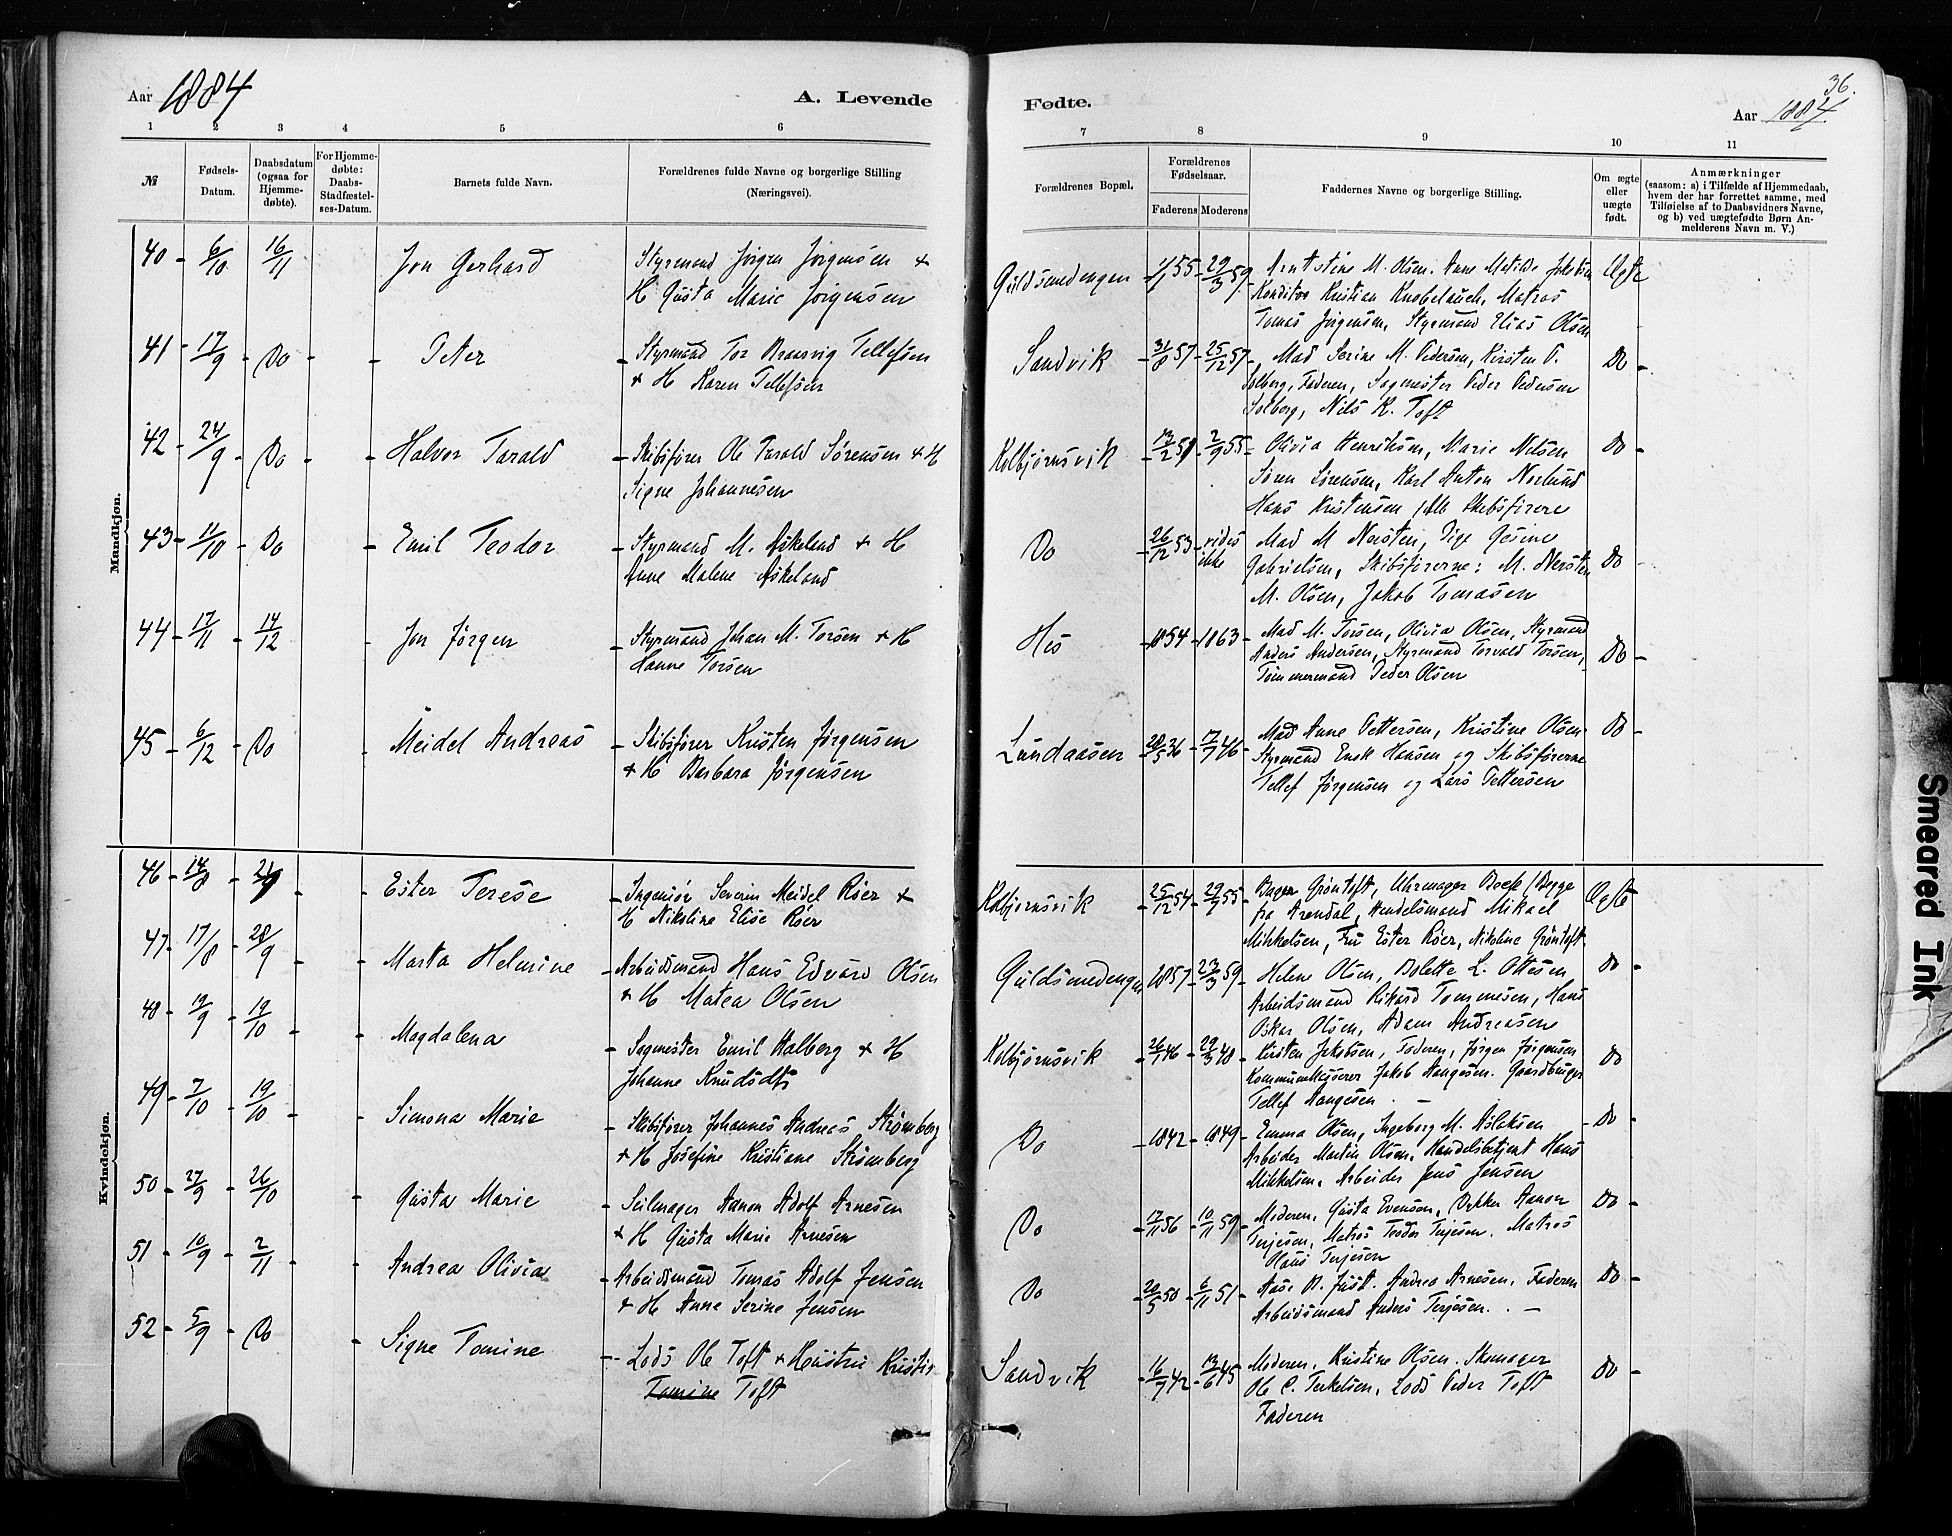 Aar 1884
A. Levende
Fødte.
36.
Aar 1884.
1 2 3 4 5 6 7 8 9 10 11
№ Fødsels-Datum. Daabsdatum (ogsaa for Hjemmedøbte). For Hjemmedøbte: Daabs-Stadfæstelses-Datum. Barnets fulde Navn. Forældrenes fulde Navne og borgerlige Stilling (Næringsvei). Forældrenes Bopæl. Forældrenes Fødselsaar. Faderens Moderens Faddernes Navne og borgerlige Stilling. Om ægte eller uægte født. Anmærkninger (saasom: a) i Tilfælde af Hjemmedaab, hvem der har forrettet samme, med Tilføielse af to Daabsvidners Navne, og b) ved uægtefødte Børn Anmelderens Navn m. V.)
Mandkjøn.
40 - 6/10 16/11 Jon Gerhard Styrmand Jörgen Jörgensen + Guldsmedengen 55 - 29/3 59 - Arntstine M. Olsen. Anne Matilde Jakobsen Ægte
H Gusta Marie Jörgensen Konditor Kristian Knobelauch, Matros
Tomas Jörgensen, Styrmand Elias Olsen
41 - 17/9 - Do - - Peter - Styrmand Tor Braarvig Tellefsen Sandvik - 31/8 57 - 25/12 57 - Mad Serine M. Pedersen, Kirsten P. Do -
+ H Karen Tellefsen Solberg, Faderen, Sagmester Peder Pedersen
Solberg, Nils K. Toft
42 - 24/9 - Do - - Halvor Tarald - Skibsfører Ole Tarald Sørensen + H Kolbjørnsvik - 13/2 51 - 2/9 55 - Olivia Henriksen, Marie Nilsen Do -
Signe Johannesen Søren Sørensen, Karl Anton Norlund
Hans Kristensen / Alle Skibsførere
43 - 11/10 - Do - Emil Teodor - Styrmand M. Askeland + H Do - 26/12 53 - vides ikke Mad M Nersten, Pige Gesine
Anne Malene Askeland Gabrielsen, Skibsførerne: M. Nersten Do -
M. Olsen, Jakob Tomasen
44 - 17/11 - 14/12 - Jon Jørgen - Styrmand Johan M. Torsen + H His - 1854 - 1863 - Mad M. Torsen, Olivia Olsen, Styrmand
Hanne Torsen Anders Andersen, Styrmand Torvald Torsen, Do -
Tømmermand Peder Olsen
45 - 6/12 - Do - Meidel Andreas - Skibsfører Kristen Jørgensen Lundaasen 20/5 36 - 17/7 46 - Mad Anne Pettersen, Kristine Olsen Do -
+ H Barbara Jørgensen Styrmand Hansen og Skibsførerne
Tellef Jørgensen og Lars Pettersen
Kvindekjøn.
46 - 14/8 - 21/9 - Ester Terese - Ingeniør Severin Meidel Røer + Kolbjørnsvik - 25/12 54 - 29/7 55 - Bager Grøntoft, Uhrmager / Begge Ægte
H Nikoline Elise Røer fra Arendal, Handelsmand Mikael
Mikkelsen, Fru Ester Røer, Nikoline Grøntoft
47 - 17/8 - 28/9 - - Marta Helmine - Arbeidsmand Hans Edvard Olsen Guldsmedengen 1857 - 23/3 59 - Helene Olsen, Bolette L. Ottesen Do -
+ H Matea Olsen Arbeidsmand Rikard Tommesen, Hans
Oskar Olsen, Adam Andreasen
48 - 19/9 - 19/10 - - Magdalena - Sagmester Emil Halberg + H Kolbjørnsvik - 26/1 46 - 29/3 48 - Kirsten Jakobsen, Faderen, Jørgen Jørgensen Do
Johanne Knudsdtr Kommunekasserer Jakob Haugesen. Gaardbruger
Tellef Haugesen. -
49 - 7/10 - 19/10 - - Simona Marie - Skibsfører Johannes Andreas Strømberg Do - 1842 - 1849 - Emma Olsen, Ingeborg M. Aslaksen - Do -
+ H Josefine Kristiane Strømberg Arbeider Martin Olsen, Handelsbetjent Hans
Mikkelsen, Arbeider Jens Jensen
50 - 27/9 - 26/10 - Gusta Marie - Seilmager Aanon Adolf Arnesen Do - 17/11 56 - 10/11 59 - Moderen, Gusta Evensen, Dækker Aanon Do -
+ H Gusta Marie Arnesen Terjesen, Matros Teodor Terjesen. Matros
Olaus Terjesen
51 - 10/9 - 2/11 - - Andrea Olivia - Arbeidsmand Tomas Adolf Jensen Do - 20/5 50 - 6/11 51 - Aase B. Just. Andrea Arnesen. Faderen Do -
+ H Anne Serine Jensen Arbeidsmand Anders Terjesen. -
52 - 5/9 - Do - Signe Tomine - Lods Ole Toft + Hustru Kristine Sandvik - 16/7 42 - 13/6 45 - Moderen, Kristine Olsen. Skomager Do -
Tomine Toft Ole C. Terkelsen, Lods Peder Toft
Faderen
Smeared Ink